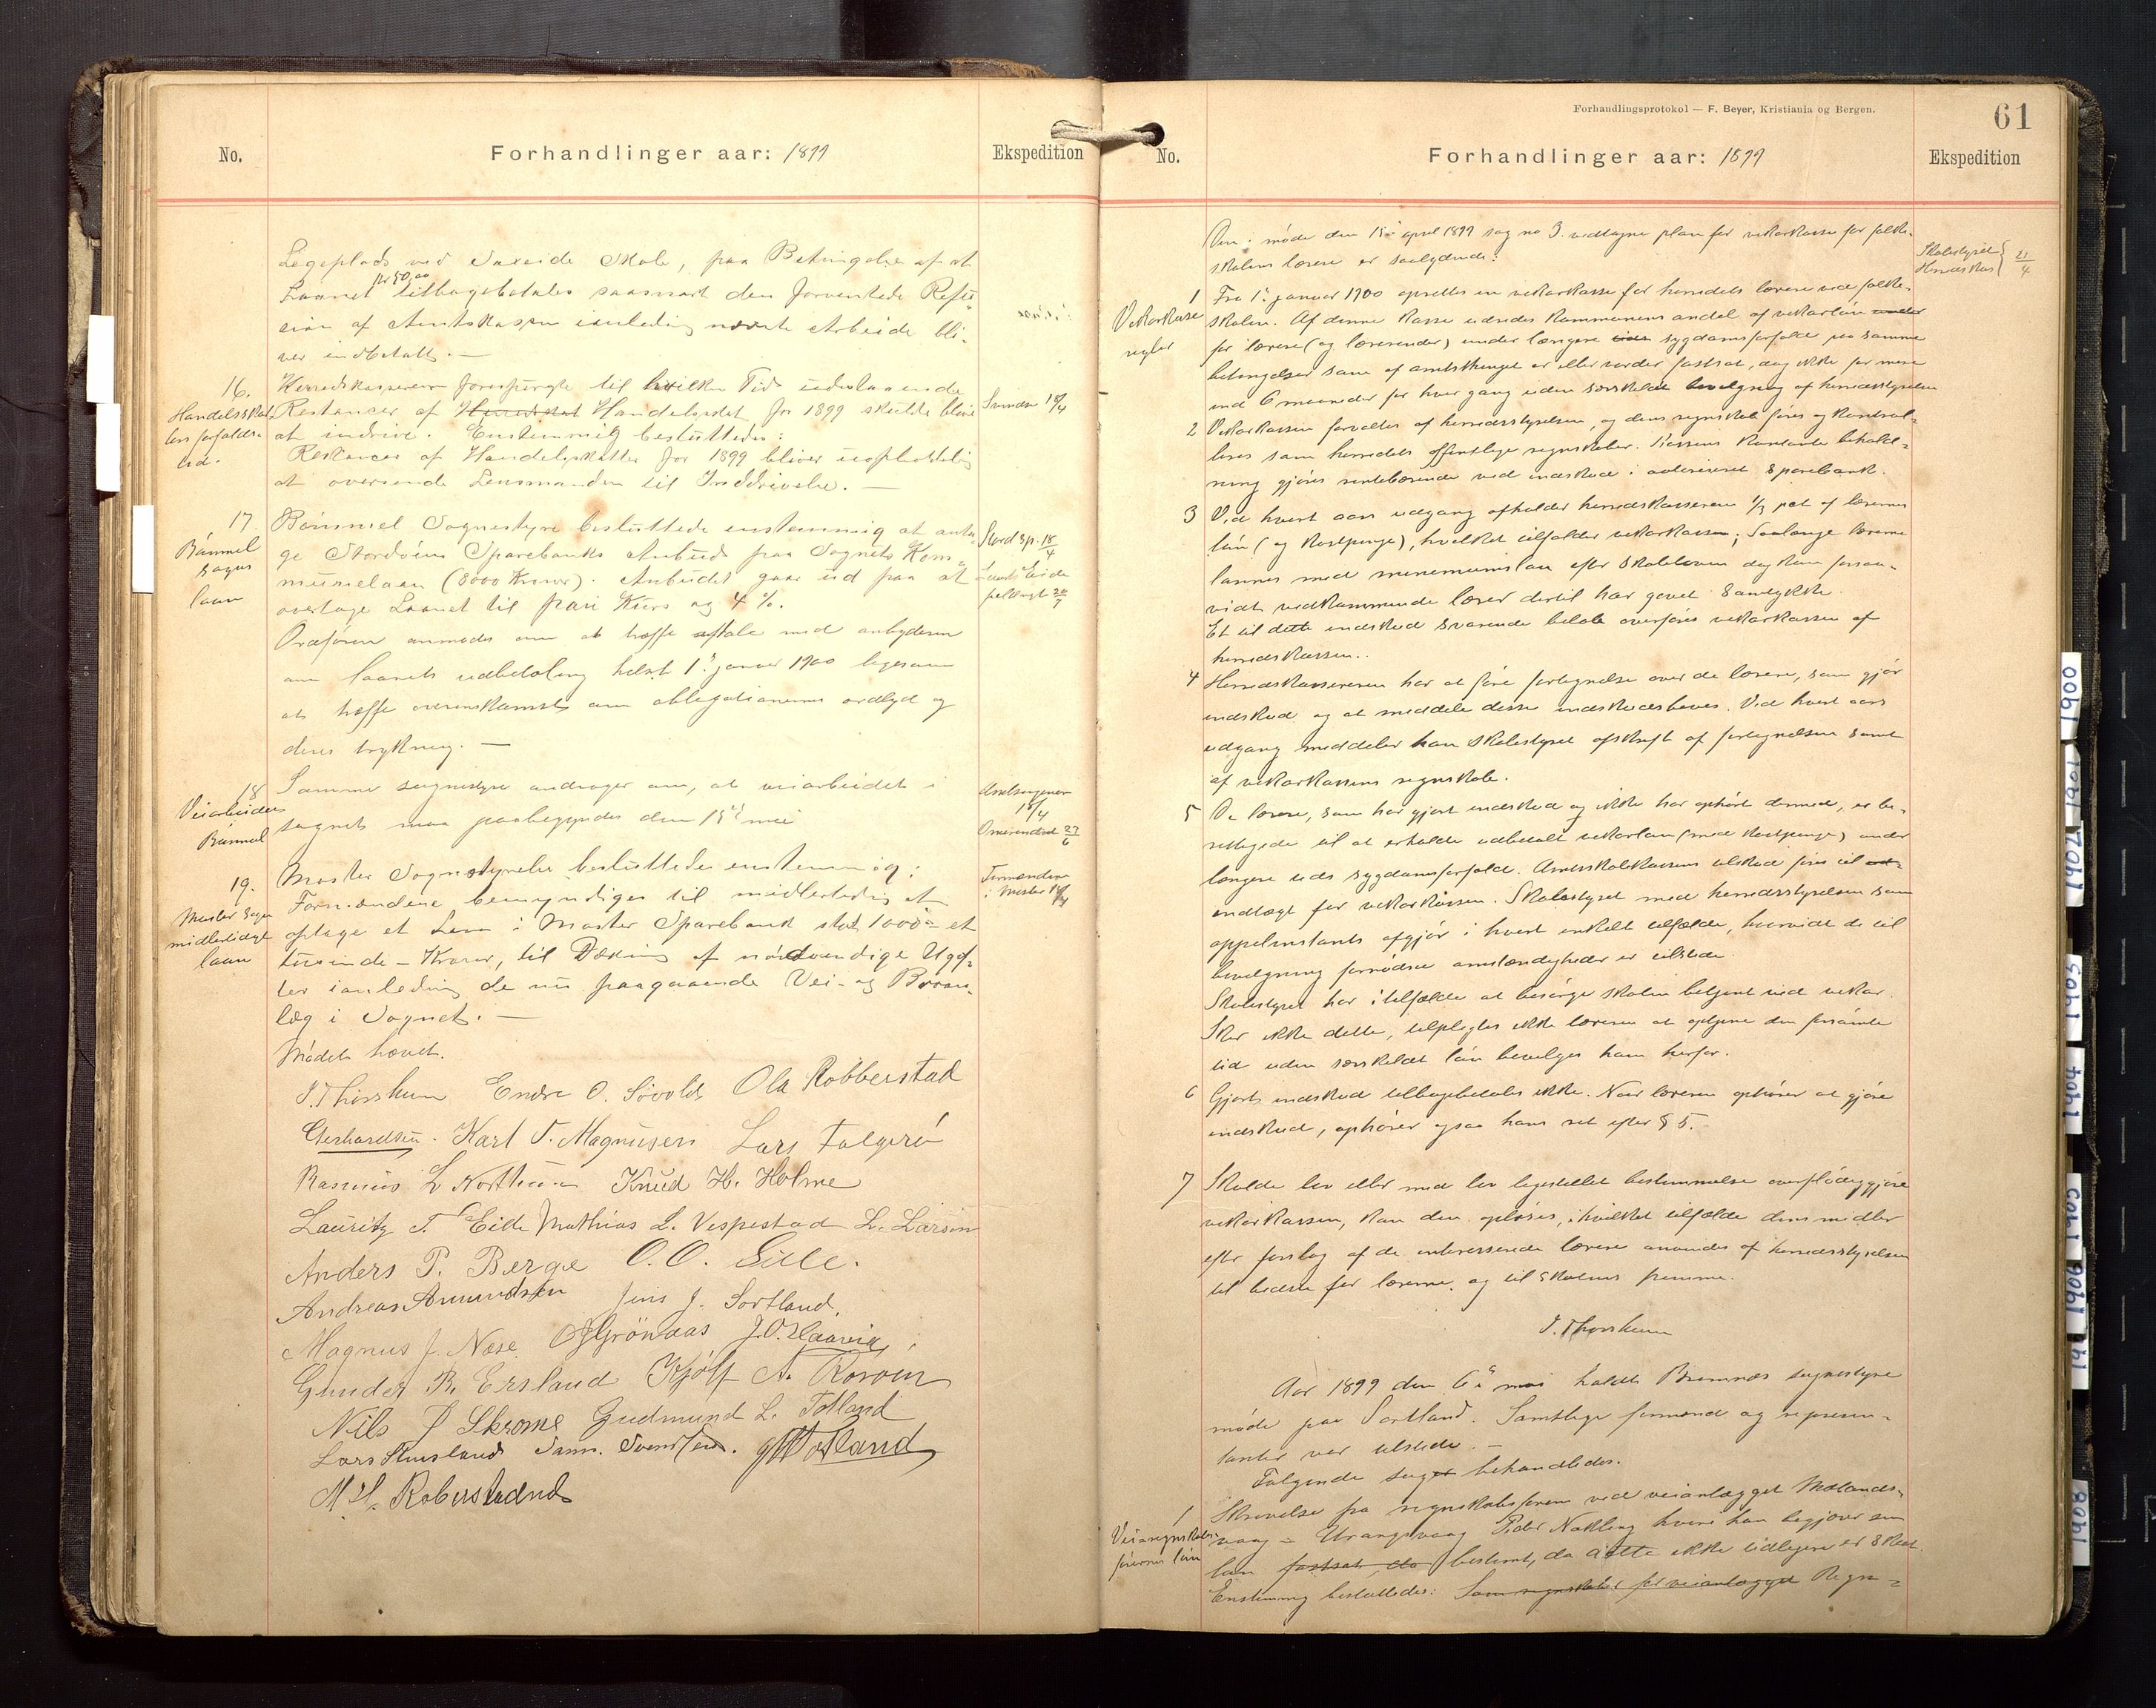 No.
Forhandlinger aar: 1899
Ekspedition
Legeplads ved Saxeide Skole, paa Betingelse af at
kr 50,00
Laanet tilbagebetales saasnart den forventede Refu-
sion af Amtskassen ianledning nævnte Arbeide bli-
ver indbetalt. —
16.
Handelsskat
tens forfalds-
tid.
Herredskassereren forespurgte til hvilken Tid udestaaende
Restancer af Handelsskat for 1899 skulde blive
at inddrive. Enstemmig besluttedes:
Restancer af Handelsskatten for 1899 bliver uopholdelig
at oversende Lensmanden til Inddrivelse. —
Svendsen 18/4
17.
Bømmel
sogns
laan
Bømmel Sognestyre besluttede enstemmig at anta-
ge Stordøens Sparebanks Anbud paa Sognets Kom-
munelaan (8000 Kroner). Anbudet gaar ud paa at
overtage Laanet til pari Kurs og 4 %.
Ordføreren anmodes om at træffe aftale med anbyderen
om laanets udbetaling helst 1ste januar 1900 ligesom
at træffe overenskomst om obligationernes ordlyd og
deres trykning. —
Stord Sp. 18/4
18
Veiarbeider
Bømmel
Samme sognestyre andrager om, at veiarbeidet i
sognet maa paabegyndes den 15de mai
Amtsingeniør
18/4
27/6
19.
Moster Sogn
midlertidigt
laan
Moster Sognestyrelse besluttede enstemmig:
Formændene bemyndiges til midlertidig at
optage et Laan i Moster Sparebank stort 1000 - et
tusinde - Kroner, til Dækning af nødvendige Udgif-
ter ianledning de nu paagaaende Vei- og Broan-
læg i Sognet. —
Mødet hævet.
Formændene
i Moster 18/4
J. Thorsheim Endre O. Søvold Ola Robberstad
Gerhardsen. Karl T. Magnusen Lars Folgerø
Rasmus L Northuun Knud H. Holme
Lauritz T. Eide Mathias L. Vespestad L. Larsen
Anders P. Berge O. O. Lille.
Andreas Amundsen Jens J. Sortland.
Magnus J. Næse O J Grönaas J. O. Haavik
Gunder R. Ersland Kjölf A. Rovoin
Nils J Skrome Gudmund L. Totland
Lars Stuesland Sam. Svendsen. G H Totland
M H. Roberstadnd
Forhandlingsprotokol — F. Beyer, Kristiania og Bergen.
61
No.
Forhandlinger aar: 1899
Ekspedition
Den i møde den 15de april 1899 sag no 3. vedtagne plan for vikarkasse for folke-
skolens lærere er saalydende:
Skolestyret
Herredskas. 21/4
1
Vikarkasse
regler
Fra 1ste januar 1900 oprettes en vikarkasse for herredets lærere ved folke-
skolen. Af denne kasse udredes kommunens andel af vikarløn under
for lærere (og lærerinder) under længere tids sygdomsforfald paa samme
betingelser som af amtsthinget er eller vorder fastsat, dog ikke for mere
end 6 maaneder for hver gang uden særskildt bevilgning af herredsstyrelsen
2 Vikarkassen forvaltes af herredsstyrelsen, og dens regnskab føres og kontrol-
leres som herredets offentlige regnskaber. Kassens kontante behold-
ning gjøres rentebærende ved indskud i autoriseret sparebank.
3 Ved hvert aars udgang afholder herredskassereren 1/3 pct af lærernes
løn (og kostpenge), hvilket tilfalder vikarkassen; saalænge lærerne
lønnes med minimumsløn efter skoleloven dog kun forsaa-
vidt vedkommende lærer dertil har givet samtykke.
Et til dette indskud svarende beløb overføres vikarkassen af
herredskassen.
4 Herredskassereren har at føre fortegnelse over de lærere, som gjør
indskud og at meddele disse indskudsbevis. Ved hvert aars
udgang meddeler han skolestyret afskrift af fortegnelsen samt
af vikarkassens regnskab.
5 De lærere, som har gjort indskud og ikke har ophørt dermed, er be-
rettigede til at erholde udbetalt vikarløn (med kostpenge) under
længere tids sygdomsforfald. Amtsskolekassens tilskud føres til
indtægt for vikarkassen. Skolestyret med herredsstyrelsen som
appelinstants afgjør i hvert enkelt tilfælde, hvorvidt de til
bevilgning fornødne omstændigheder er tilstede.
Skolestyret har i tilfælde at besørge skolen betjent ved vikar.
Sker ikke dette, tilpligtes ikke læreren at optjene den forsømte
tid uden særskildt løn bevilges ham herfor.
6 Gjort indskud tilbagebetales ikke. Naar læreren ophører at gjøre
indskud, ophører ogsaa hans ret efter § 5.
7 Skulde lov eller med lov ligestillet bestemmelse overflødiggjøre
vikarkassen, kan den opløses, i hvilket tilfælde dens midler
efter forslag af de interesserede lærere anvendes af herredsstyrelsen
til bedste for lærerne og til skolens fremme.
J. Thorsheim
Aar 1899 den 6te mai holdt Bremnæs sognestyre
møde paa Sortland. Samtlige formænd og repræsen-
tanter var tilstede. —
Følgende sager behandledes.
1
Veiregnskabs-
førerens løn
Skrivelse fra regnskabsføreren ved veianlægget Mælands-
vaag - Urangsvaag Peder Nøkling hvori han begjærer sin
løn fastsat, da bestemt, da dette ikke tidligere er skeet.
Enstemmig besluttedes: Som regnskabsf. for veianlægget Regn-
1900
1902 1901
1903
1904
1905
1906
1908